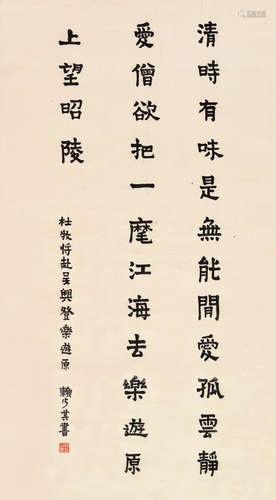 清時有味是無能閒愛孤雲靜
愛僧欲把一麾江海去樂遊原
上望昭陵
杜牧將赴吳興登樂遊原 賴少其書